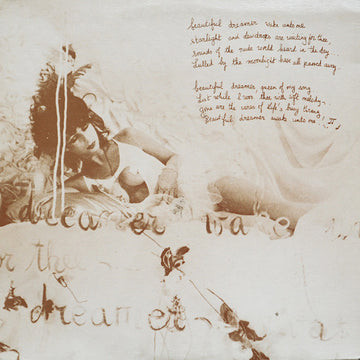 beautiful dreamer wake unto me
starlight and dewdrops are waiting for thee
sounds of the rude world heard in the day
lulled by the moonlight have all passed away.
beautiful dreamer, queen of my song
list while I woo thee with soft melody.
Gone are the cares of life's busy throng
Beautiful dreamer awake unto me!
dreamer wake
or thee
dreamer